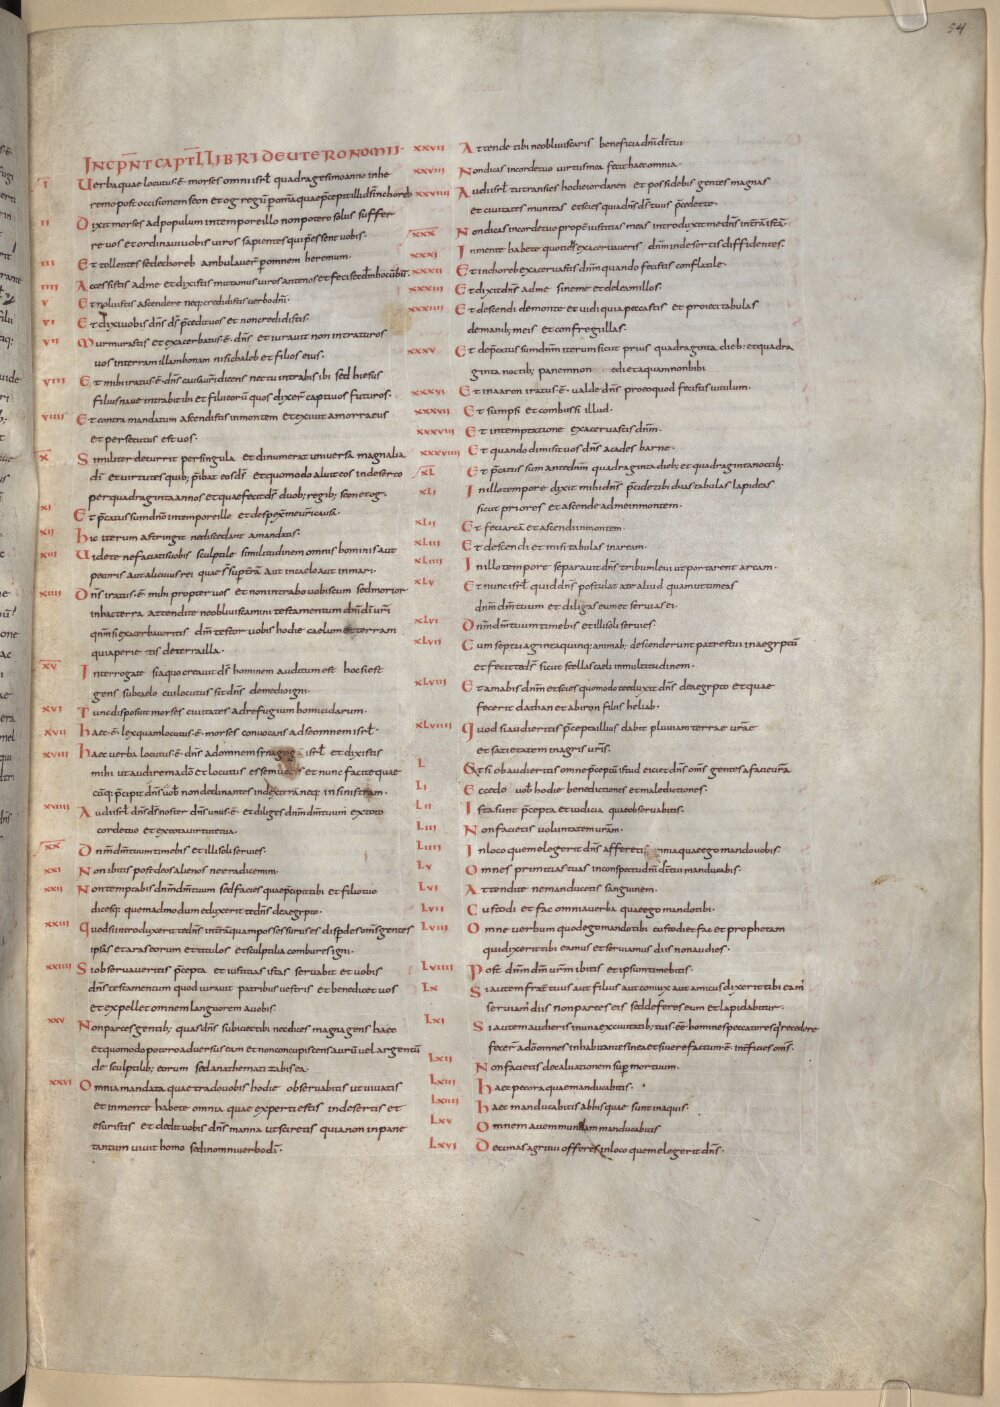 94
INCPNT CAPTL LIBRI DEUTERONOMII·
I Uerba quae locutus·ē· moyses omni isrl quadragesimo anno in he
remo post occisionem seon et og regū
II Dixit moyses ad populum in tempore illo non potero solus suffer
re vos et ordinavi vobis viros sapientes qui pessent vobis·
III Et tollentes se de choreb ambulaver p omnem heremum·
IIII Accessistis ad me et dixistis mittamus viros ante nos
V Et noluistis ascendere neq· credidistis verbo dni·
VI Et dixi vobis dns ds pcedit vos et non credidistis·
VII Murmurastis et exacerbatus·ē· dns et iuravit non intraturos
vos in terram illam bonam nisi chaleb et filios eius·
VIII Et mihi iratus·ē· dns causa uri dicens nec tu intrabis ibi sed hiesus
filius nave intrabit ibi et filii eorū quos dixer captivos futuros·
VIIII Et contra mandatum ascendistis in montem et exivit amorraeus
et persecutus est vos·
X Similiter decurrit per singula et dinumerat universa magnalia
di et virtutes quib; pibat eos ds et quomodo aluit eos in deserto
per quadraginta annos et quae fecit ds duob; regib; seon et og·
XI Et pcatus sum dno in tempore illo et despex me uri causa·
XII hic iterum astringit ne discedant a mandatis·
XIII Uidete ne faciatis vobis sculptile similitudinem omnis hominis aut
pecoris aut alicuius rei quae s super tra aut in caelo aut in mari·
XIIII Dns iratus·ē· mihi propter vos et non intrabo vobiscum sed morior
in hac terra attendite ne obliviscamini testamentum dni di uri
qnm si exacerbaveritis dm testor vobis hodie caelum et terram
quia perie tis de terra illa·
XV Interrogate si a quo creavit ds hominem auditum est hoc si est
gens sub caelo cui locutus sit dns de medio igni·
XVI Tunc disposuit moyses civitates ad refugium homicidarum·
XVII haec·ē· lex quam locutus·ē· moyses convocans ad se omnem isrl·
XVIII haec verba locutus·ē· dns ad omnem synagog isrl et dixistis
mihi ut audirem a dō et locutus essem vobis et nunc facite quae
cūq; pcipit dns vob non declinantes in dextrā neq; in sinistram·
XVIIII Audi isrl dns ds noster dns unus·ē· et diliges dnm dm tuum ex toto
corde tuo et ex tota virtute tua·
XX Dnm dm tuum timebis et illi soli servies·
XXI Non ibitis post deos alienos nec radicemm·
XXII Non temptabis dnm dm tuum sed facies quae pcipit tibi et filio tuo
dicesq; quemadmodum eduxerit te dns de aegypto·
XXIII Quod si introduxerit te dns in trā quam possessurus es disp des oms gentes
ipsas et aras eorum et titulos et sculptilia combures igni·
XXIIII Si observaveritis pcepta et iustitias istas servabit et vobis
dns testamentum quod iuravit patribus vestris et benedicet vos
et expellet omnem languorem a vobis·
XXV Non parces gentib; quas dns subiecit tibi nec dices magna gens haec
et quomodo potero adversus eam et non concupiscens aurū vel argentū
de sculptilib; eorum sed anathematizabis ea·
XXVI Omnia mandata quae trado vobis hodie observabitis ut vivatis
et in mente habete omnia quae experti estis in desertis et
esuristis et dedit vobis dns manna ut sciretis quia non in pane
tantum vivit homo sed in omni verbo di·
XXVII Attende tibi ne obliviscaris beneficia dni di tui
XXVIII Non dicas in corde tuo virtus mea fecit haec omnia·
XXVIIII Audi isrl tu transies hodie iordanen et possidebis gentes magnas
et civitates munitas et scies quia dns ds tuus pcedet te·
XXX Non dicas in corde tuo propt iustitias meas introduxit me dns in trā istā·
XXXI In mente habete quotiens exacerbaveris dnm in desertis diffidentes·
XXXII Et in choreb exacervastis dnm quando fecistis conflatile·
XXXIII Et dixit dns ad me sine me et deleam illos·
XXXIIII Et descendi de monte et vidi quia peccastis et proieci tabulas
de manib; meis et confregi illas·
XXXV Et depcatus sum dnm iterum sicut prius quadraginta dieb· et quadra
ginta noctib; panem non edi et aquam non bibi
XXXVI Et in aaron iratus·ē· valde dns pro eo quod fecistis vitulum·
XXXVII Et sumpsi et combussi illud·
XXXVIII Et in temptatione exacervastis dnm·
XXXVIIII Et quando dimisit vos dns a cades barne·
XL Et pcatus sum ante dnm quadraginta dieb; et quadraginta noctib;
XLI In illo tempore dixit mihi dns pcide tibi duas tabulas lapideas
sicut priores et ascende ad me in montem·
XLII Et feci arcā et ascendi in montem·
XLIII Et descendi et misi tabulas in arcam·
XLIIII In illo tempore separavit dns tribum levi ut portarent arcam·
XLV Et nunc isrl quid dns postulat a te aliud quam ut timeas
dnm dm tuum et diligas eum et servias ei·
XLVI Dnm dm tuum timebis et illi soli servies·
XLVII Cum septuaginta quinq; animab; descenderunt patres tui in aegyptū
et fecit te ds sicut stellas caeli in multitudinem·
XLVIII Et amabis dnm et scies quomodo te eduxit dns de aegypto et quae
fecerit dathan et abiron filiis heliab·
XLVIIII Quod si audieritis pcepta illius dabit pluviam terrae urae
et satietatem in agris uris·
L Et si obaudieritis omne pceptū istud eiciet dns oms gentes a facie ura
LI Ecce do vob hodie benedictiones et maledictiones·
LII Ista sunt pcepta et iudicia quae observabitis·
LIII Non facietis voluntatem uram·
LIIII In loco quem elegerit dns offeretis omnia quae ego mando vobis·
LV Omnes primitias tuas in conspectu dni di tui manducabis·
LVI Attendite ne manducetis sanguinem·
LVII Custodi et fac omnia verba quae ego mando tibi·
LVIII Omne verbum quod ego mando tibi custodi et fac et prophetam
qui dixerit tibi eamus et serviamus diis non audies·
LVIIII Post dnm dm urm ibitis et ipsum timebitis·
LX Si autem frater tuus aut filius aut coniux aut amicus dixerit tibi eam
serviam diis non parces eis sed deferes eum et lapidabitur·
LXI Si autem audieris in una ex civitatib; tuis
LXII Non facietis decalvationem sup mortuum·
LXIII haec pecora quae manducabitis·
LXIIII haec manducabitis ab his quae sunt in aquis·
LXV Omnem avem mundam manducabitis
LXVI Decimas agri tui offeres in loco quem elegerit dns·